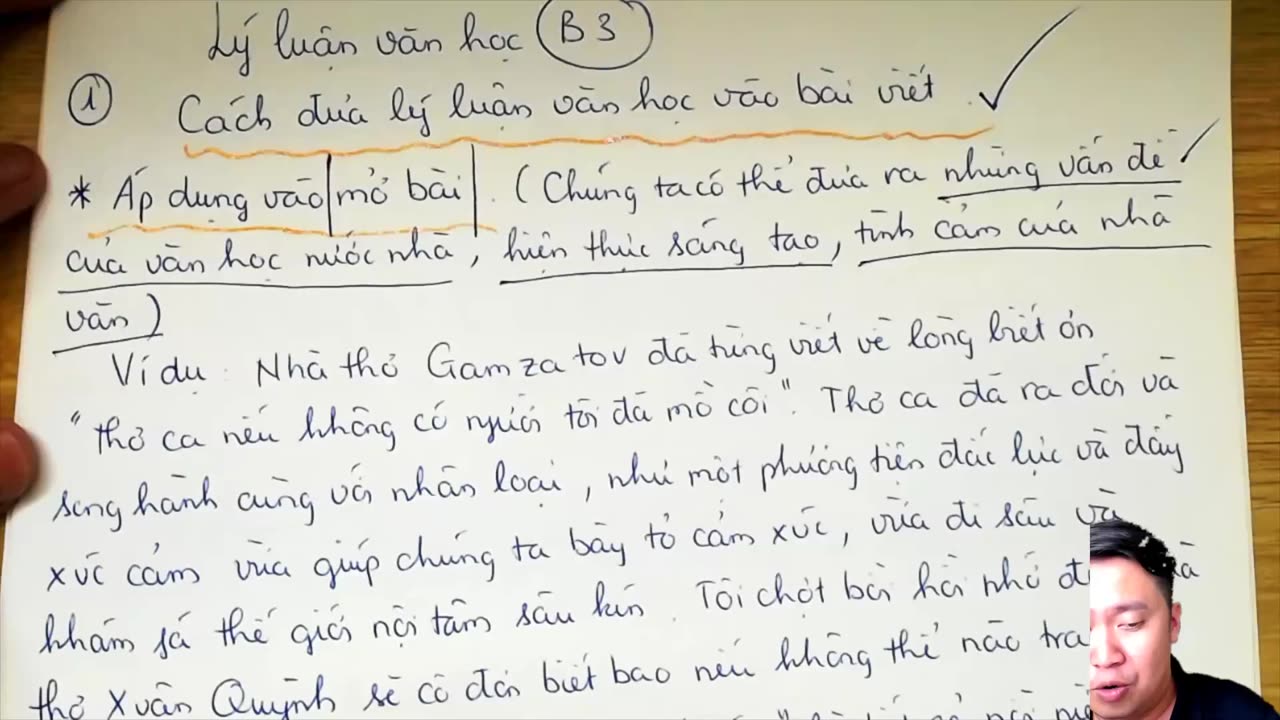 Lý luận văn học (B3)
① Cách đưa lý luận văn học vào bài viết
* Áp dụng vào mở bài. (Chúng ta có thể đưa ra những vấn đề
của văn học nước nhà, hiện thực sáng tạo, tình cảm của nhà
văn)
Ví dụ: Nhà thơ Gamzatov đã từng viết về lòng biết ơn
"thơ ca nếu không có người tôi đã mồ côi". Thơ ca đã ra đời và
song hành cùng với nhân loại, như một phương tiện đắc lực và đầy
xúc cảm vừa giúp chúng ta bày tỏ cảm xúc, vừa đi sâu và
khám phá thế giới nội tâm sâu kín. Tôi chợt bồi hồi nhớ
thơ Xuân Quỳnh sẽ cô đơn biết bao nếu không thể nào